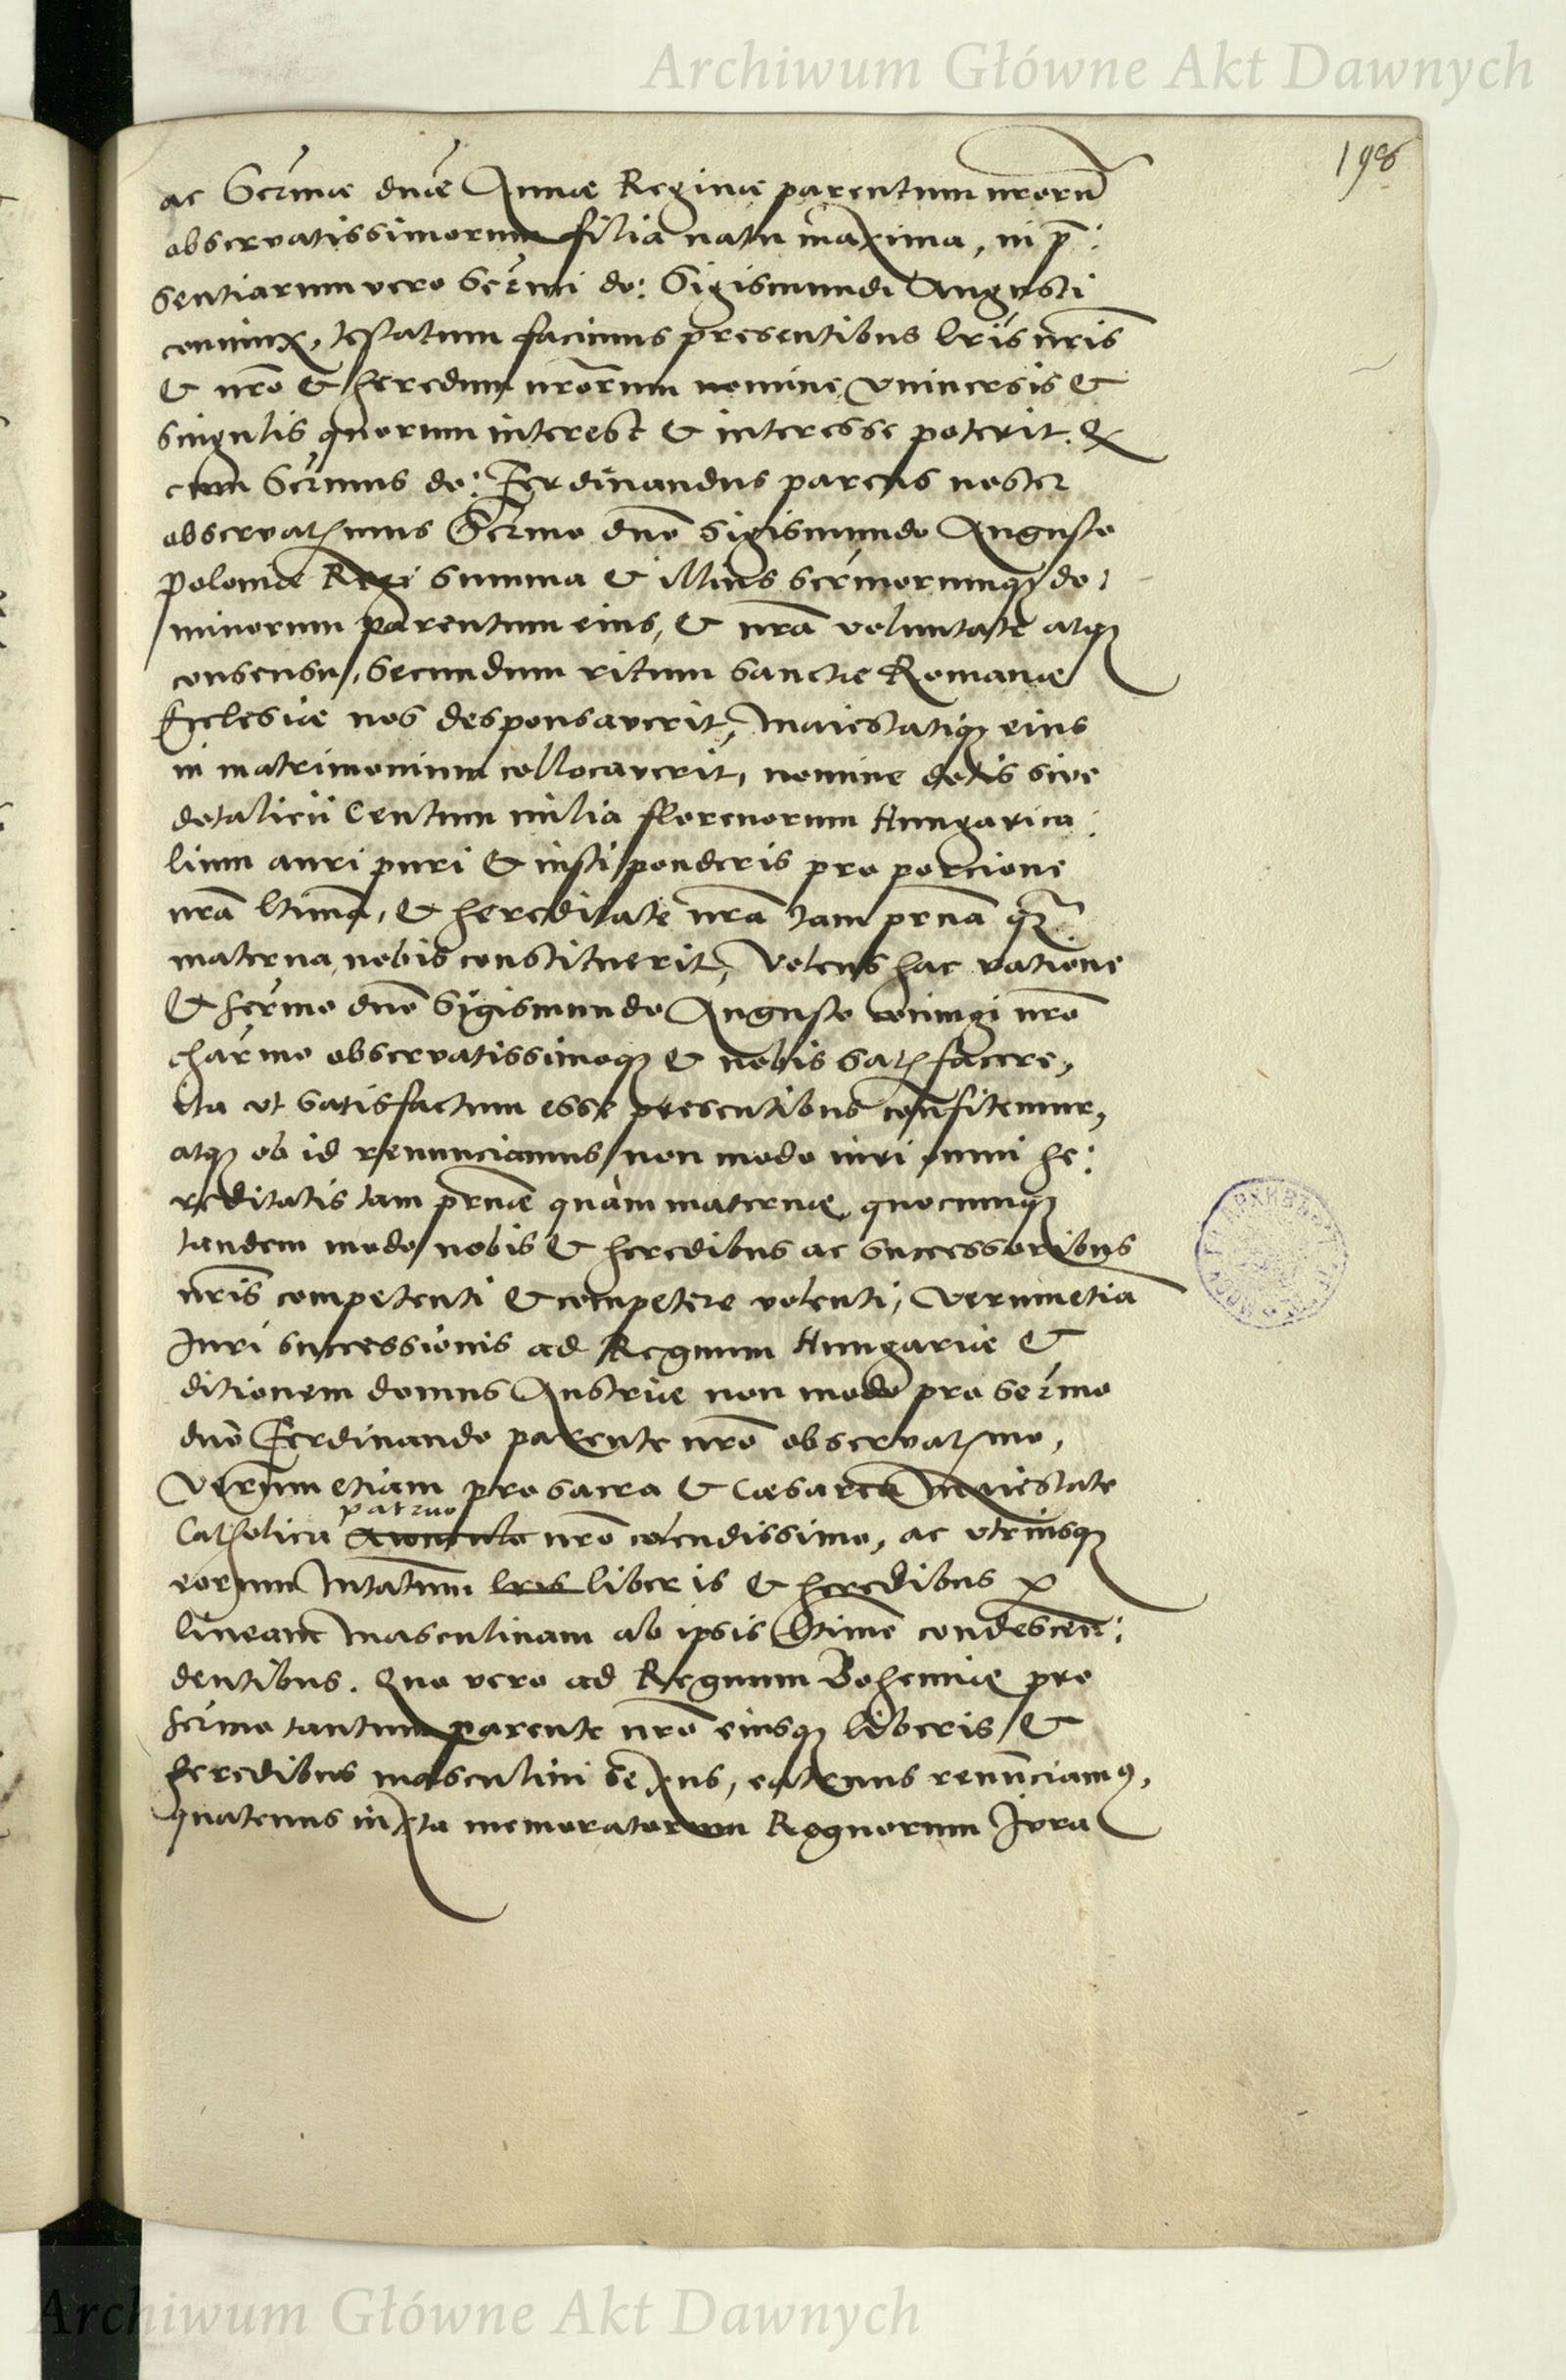 Archiwum Główne Akt Dawnych
198
ac Sermae dnae Annae Reginae parentum nrorū
observatissimorum filia natu maxima, in p̄:
sentiarum vero Sermi do: Sigismundi Augusti
coniunx, testatum facimus presentibus lr̄is nr̄is
& nrō & heredum nrōrum nomine vniuersis &
singulis quorum interest & interesse poterit. Q
cum Sermus do: Ferdinandus parens noster
observatsmus Sermo dnō Sigismundo Augusto
Poloniae Regi summa & illius sermorumq do:
minorum parentum eius, & nrā voluntate atq
consensu, secundum ritum Sanctae Romanae
Ecclesiae nos desponsaverit, Maiestatiq eius
in matrimonium collocaverit, nomine dotis sive
dotalicii Centum milia florenorum Hungarica:
lium auri puri & iusti ponderis pro porcione
nrā ltima, & hereditate nrā tam prnā qz
materna nobis constituerit, Volens hac ratione
& sermo dnō Sigismundo Augusto coniugi nrō
charmo observatissimoq & nobis satsfacere,
ita vt satisfactum esse presentibus confitemur,
atq ob id renunciamus non modo iuri omni he:
reditatis tam prnae quàm maternae quocunq
tandem modo nobis & heredibus ac successoribus
nr̄is competenti & competere volenti, Verumetiā
Iuri successionis ad Regnum Hungariae &
ditionem domus Austriae non modo pro sermo
dnō Ferdinando parente nrō observatsmo,
Verum etiam pro sacra & Caesarea Maiestate
patruo
Catholica avonculo nrō colendissimo, ac vtriusq
eorum Mtatum lris liberis & heredibus p
lineam masculinam ab ipsis ltime condescen:
dentibus. Quo vero ad Regnum Bohemiae pro
sermo tantum parente nrō eiusq liberis &
heredibus masculini sexus, eatenus renunciam9,
quatenus iuxta memoratorum Regnorum Iura
Archiwum Główne Akt Dawnych